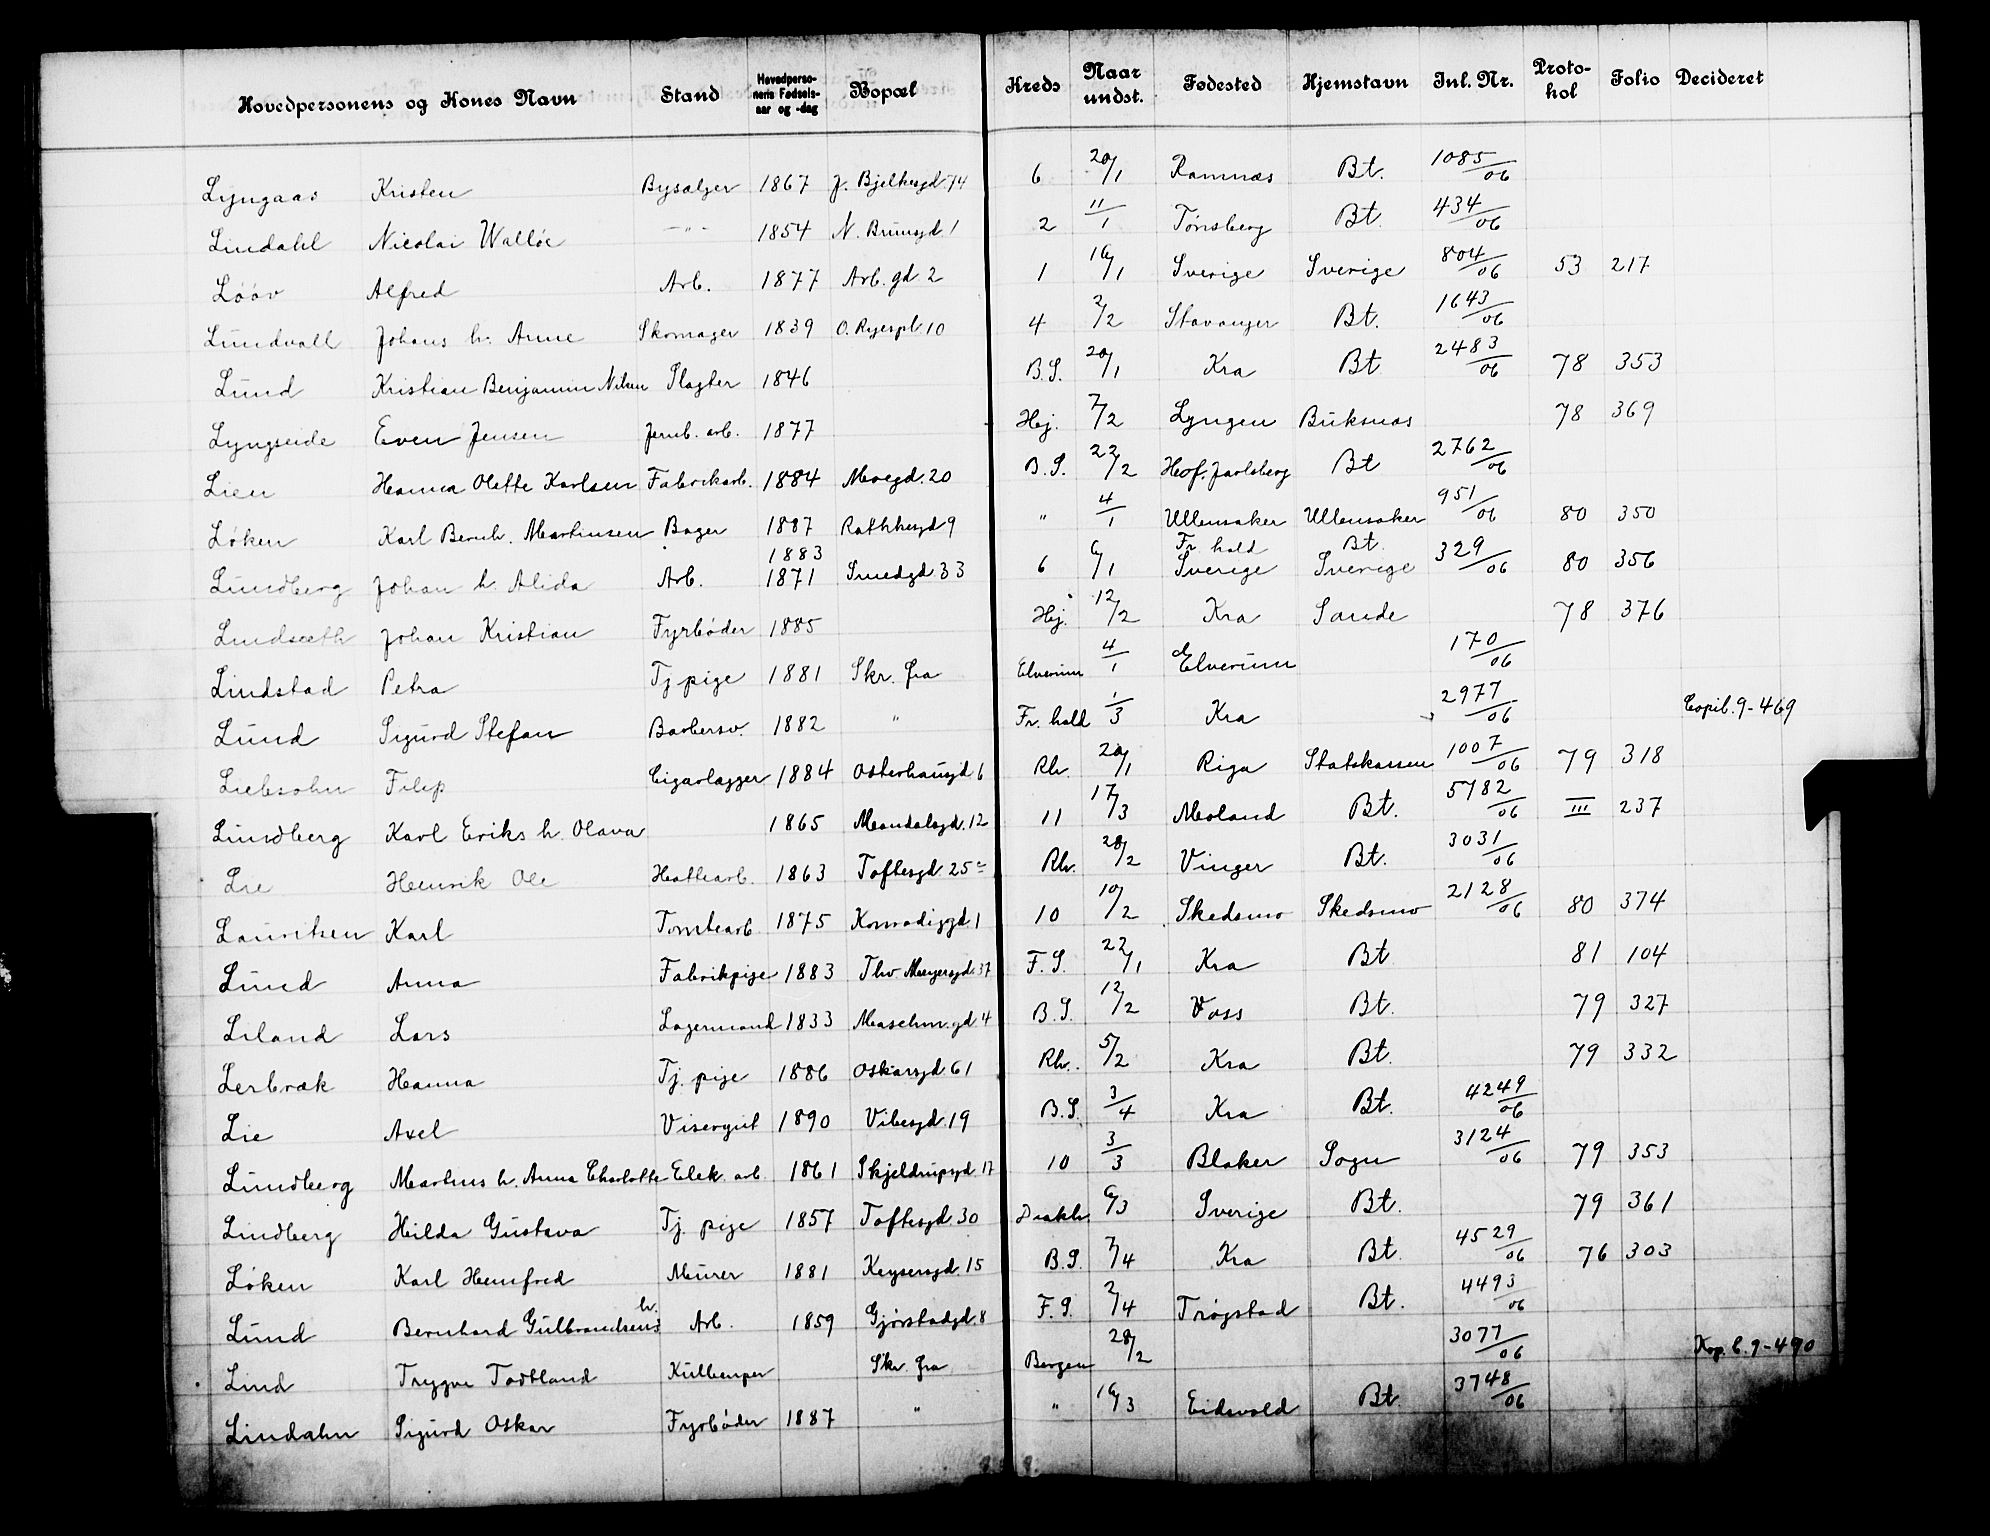 Hovedpersonens og Kones Navn Stand Hovedpersonens Fødselsaar og -dag Bopæl Kreds Naar undst. Fødested Hjemstavn Inl. Nr. Protokol Folio Decideret
Lyngaas Kristen Bysælger 1867 J. Bjelkesgd 74 6 20/1 Ramnæs Bt. 1085/06
Lindahl Nicolai Walløe -"- 1854 N. Brunsgd 1 2 11/1 Tønsberg Bt. 434/06
Lööv Alfred Arb. 1877 Arb. gd 2 1 16/1 Sverige Sverige 804/06 53 217
Lundvall Johans h. Anne Skomager 1839 O. Ryespl. 10 4 2/2 Stavanger Bt. 1643/06
Lund Kristian Benjamin Nilsen Slagter 1846 B.S. 20/1 Kra Bt 2483/06 78 353
Lyngseide Even Jensen Jernb. arb. 1877 Hej. 7/2 Lyngen Buksnæs 78 369
Lien Hanna Olette Karlsen Fabrikarb. 1884 Moegd. 20 B.S. 22/2 Hof. Jarlsberg Bt 2762/06
Løken Karl Bernh. Martinsen Bager 1887 Rathkesgd 9 " 4/1 Ullensaker Ullensaker 951/06 80 350
Lundberg Johan h. Alida Arb. 1883 1871 Smedgd 33 6 6/1 Fr. hald Sverige Bt. Sverige 329/06 80 356
Lindsæth Johan Kristian Fyrbøder 1885 Hej. 12/2 Kra Sande 78 376
Lindstad Petra Tj pige 1881 Skr. fra Elverum 4/1 Elverum 170/06
Lund Sigurd Stefan Barbersv. 1882 " Fr. hald 1/3 Kra 2977/06 Copib. 9-469
Liebsohn Filip Cigarlagger 1884 Osterhausgd 6 Rh. 20/1 Riga Statskassen 1007/06 79 318
Lundberg Karl Eriks h. Olava 1865 Mandalsgd. 12 11 17/3 Moland Bt. 5782/06 III 237
Lie Henrik Ole Hattearb. 1863 Toftesgd. 25 Rh. 28/2 Vinger Bt. 3031/06
Lauritsen Karl Tomtearb. 1875 Konradisgd. 1 10 10/2 Skedsmo Skedsmo 2128/06 80 374
Lund Anna Fabrikpige 1883 Thv. Meyersgd. 37 F.S. 22/1 Kra Bt 81 104
Liland Lars Lagermand 1833 Maschin.gd. 4 B.S. 12/2 Voss Bt. 79 327
Lerbræk Hanna Tj. pige 1886 Oskarsgd 61 Rh. 5/2 Kra Bt. 79 332
Lie Axel Visergut 1890 Vibesgd. 19 B.S. 3/4 Kra Bt. 4249/06
Lundberg Martins h. Anna Charlotte Elek. arb. 1861 Skjeldrupsgd. 17 10 3/3 Blaker Sogn 3124/06 79 353
Lindberg Hilda Gustava Tj. pige 1857 Toftesgd. 30 Diakh. 6/3 Sverige Bt. 79 361
Løken Karl Hemfred Murer 1881 Keysersgd. 15 B.S. 7/4 Kra Bt. 4529/06 76 303
Lund Bernhard Gulbrandsens h. Arb. 1859 Gjørstadgd. 8 F.S. 2/4 Trøgstad Bt. 4493/06
Lind Trygve Todtland Kullemper Skr. fra Bergen 28/2 3077/06 Kop. b. 9-490
Lindahn Sigurd Oskar Fyrbøder 1887 " " 16/3 Eidsvold Bt. 3748/06